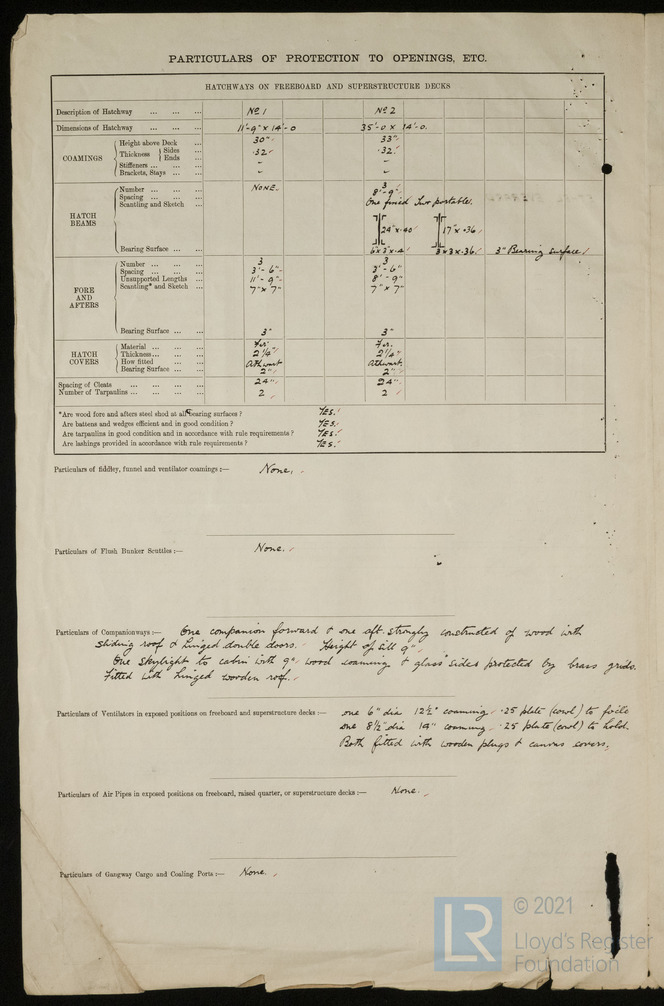 PARTICULARS OF PROTECTION TO OPENINGS, ETC.
HATCHWAYS ON FREEBOARD AND SUPERSTRUCTURE DECKS
Description of Hatchway ... ... ... No 1 No 2
Dimensions of Hatchway ... ... ... 11'-9" x 14'-0 35'-0 x 14'-0.
COAMINGS
Height above Deck ... 30" 33"
Thickness { Sides ... .32 .32
Ends ...
Stiffeners ... ... ... - -
Brackets, Stays ... ... - -
HATCH BEAMS
Number ... ... ... NONE. 3
Spacing ... ... ... 8'-9"
Scantling and Sketch ... One fixed Two portable.
24" x .40 17" x .36
Bearing Surface ... ... 6 x 3 x .4 3 x 3 x .36 3" Bearing surface
FORE AND AFTERS
Number ... ... ... 3 3
Spacing ... ... ... 3'-6" 3'-6"
Unsupported Lengths ... 11'-9" 8'-9"
Scantling* and Sketch ... 7" x 7" 7" x 7"
Bearing Surface ... ... 3" 3"
HATCH COVERS
Material ... ... ... Fir. Fir.
Thickness ... ... ... 2 1/4" 2 1/4"
How fitted ... ... Athwart Athwart
Bearing Surface ... ... 2" 2"
Spacing of Cleats ... ... ... ... 24" 24"
Number of Tarpaulins ... ... ... ... 2 2
*Are wood fore and afters steel shod at all bearing surfaces? YES.
Are battens and wedges efficient and in good condition? YES.
Are tarpaulins in good condition and in accordance with rule requirements? YES.
Are lashings provided in accordance with rule requirements? YES.
Particulars of fiddley, funnel and ventilator coamings:— None.
Particulars of Flush Bunker Scuttles:— None.
Particulars of Companionways:— One companion forward & one aft strongly constructed of wood with
sliding roof & hinged double doors. Height of sill 9"
One skylight to cabin with 9" wood coaming & glass sides protected by brass grids.
Fitted with hinged wooden roof.
Particulars of Ventilators in exposed positions on freeboard and superstructure decks:— one 6" dia 12½" coaming .25 plate (cowl) to focle
one 8½" dia coaming .25 plate (cowl) to hold.
Both fitted with wooden plugs & canvas covers.
Particulars of Air Pipes in exposed positions on freeboard, raised quarter, or superstructure decks:— None.
Particulars of Gangway Cargo and Coaling Ports:— None.
LR
© 2021
Lloyd's Register
Foundation